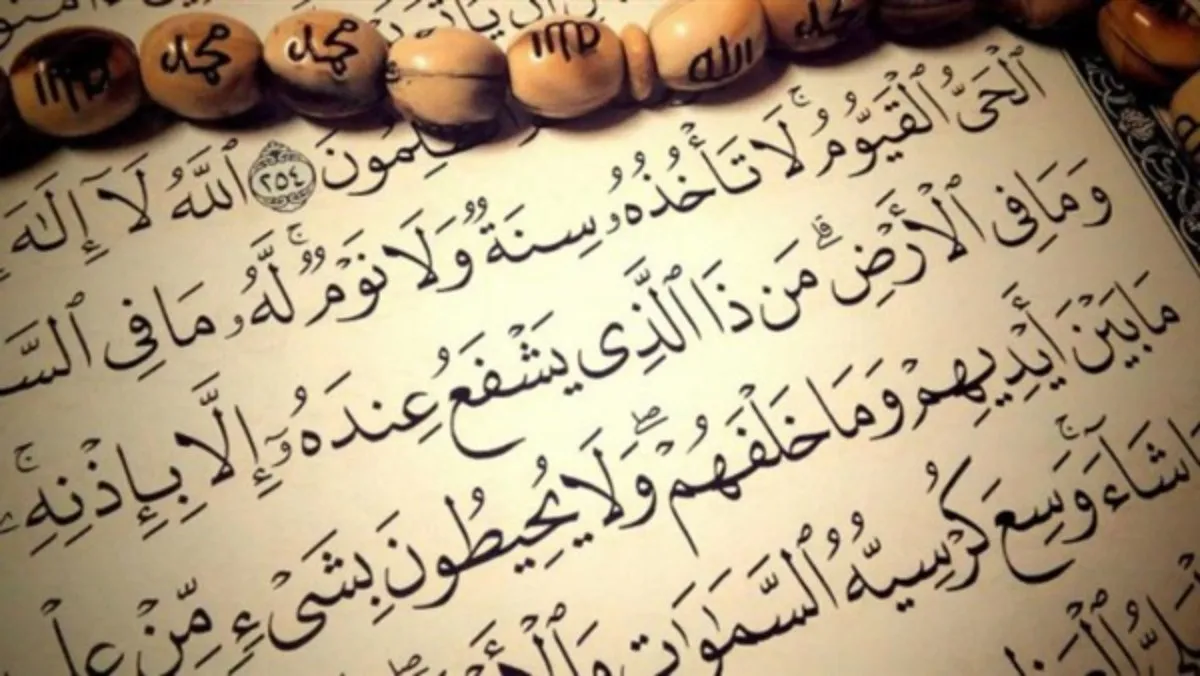 محمد محمد الله
٢٥٤ ٱللَّهُ لَآ إِلَٰهَ
ٱلْحَىُّ ٱلْقَيُّومُ ۚ لَا تَأْخُذُهُۥ سِنَةٌ وَلَا نَوْمٌ ۚ لَّهُۥ مَا فِى
وَمَا فِى ٱلْأَرْضِ ۗ مَن ذَا ٱلَّذِى يَشْفَعُ عِندَهُۥٓ إِلَّا بِإِذْنِهِۦ ۚ
مَا بَيْنَ أَيْدِيهِمْ وَمَا خَلْفَهُمْ ۖ وَلَا يُحِيطُونَ بِشَىْءٍ مِّنْ
شَآءَ ۚ وَسِعَ كُرْسِيُّهُ ٱلسَّمَٰوَٰتِ